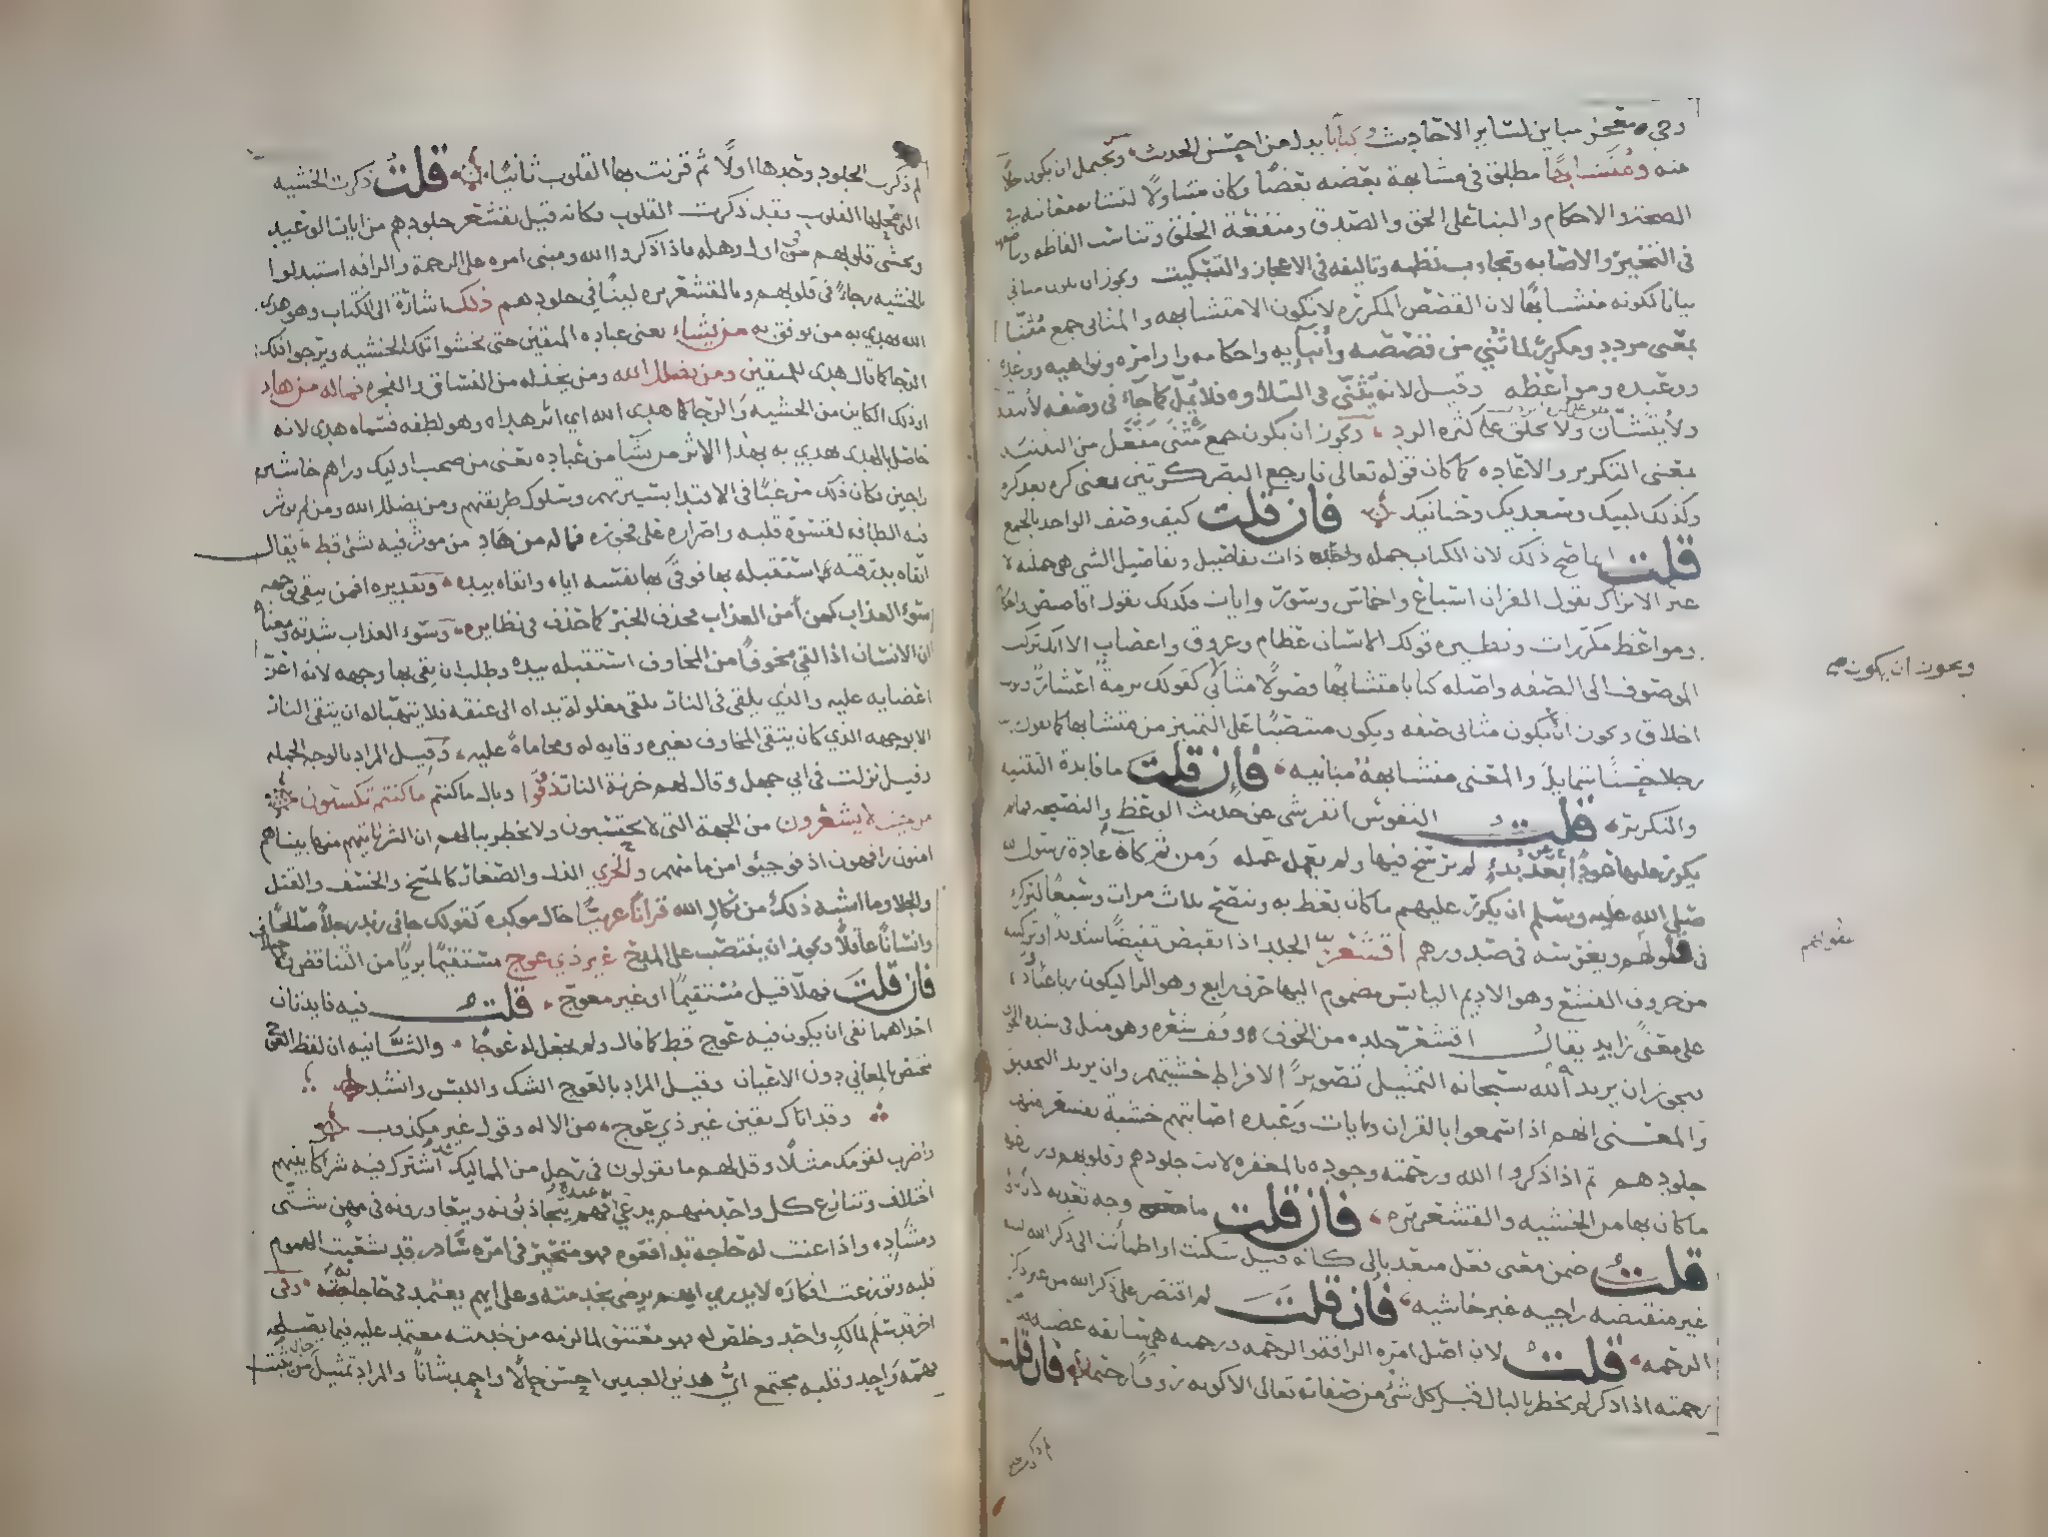 وحي معجز مباين لسائر الاحاديث كتابا بدل من احسن الحديث ويحتمل ان يكون حالا
منه ومتشابها مطلق في مشابهة بعضه بعضا وكان متناولا لتشابه معانيه في
الصحة والاحكام والبنا على الحق والصدق ومنفعة الخلق وتناسب الفاظه
في التخير والاصابه وتجاوب نظمه وتاليفه في الاعجاز والتبكيت ويجوز ان يكون مثاني
بيانا لكونه متشابها لان القصص المكرره لا تكون الا متشابهه والمثاني جمع مثنا
بمعنى مردد ومكرر لما ثني من قصصه وأنبايه واحكامه واوامره ونواهيه ووعده
ووعيده ومواعظه وقيل لانه يثنى في التلاوه فلا يمل كما جاء في وصفه لا يتفه
ولا يتشان ولا يخلق على كثره الرد ويجوز ان يكون جمع مثنى مفعل من التثنيه
بمعنى التكرير والاعاده كما كان قوله تعالى فارجع البصر كرتين بمعنى كره بعد كره
وكذلك لبيك وسعديك وحنانيك فان قلت كيف وصف الواحد بالجمع
قلت انما صح ذلك لان الكتاب جمله ذات تفاصيل وتفاصيل الشي هي جملته لا
غير الا تراك تقول القران اسباع واخماس وسور وايات فكذلك تقول اقاصيص واحكام
ومواعظ مكررات ونظيره قولك الانسان عظام وعروق واعصاب الا انك تركت
الموصوف الى الصفه واصله كتابا متشابها فصولا مثاني كقولك برمة اعشار وثوب
اخلاق ويجوز ان يكون مثاني صفه ويكون منتصبا على التمييز من متشابها كما تقول
رجلا حسنا شمايل والمعنى متشابهة مثانيه فان قلت ما فايدة التثنيه
والتكرير قلت النفوس انفر شي عن حديث الوعظ والنصيحه فما لم
يكرر عليها عودا بعد بدء لم ترسخ فيها ولم يعمل عمله ومن ثم كان عادة رسول الله
صلى الله عليه وسلم ان يكرر عليهم ما كان يعظ به وينصح ثلاث مرات وسبعا ليركزه
في قلوبهم ويغرسه في صدورهم اقشعر الجلد اذا تقبض تقبضا شديدا وتركيبه
من حروف القشع وهو الاديم اليابس مضموم اليها حرف رابع وهو الرا ليكون رباعيا
على معنى زايد يقال اقشعر جلده من الخوف وقف شعره وهو مثل في شدة الخوف
فيجوز ان يريد الله سبحانه التمثيل تصويرا لافراط خشيتهم وان يريد التحقيق
والمعنى انهم اذا سمعوا بالقران وبايات وعيده اصابتهم خشية تقشعر منها
جلودهم ثم اذا ذكروا الله ورحمته وجوده بالمغفره لانت جلودهم وقلوبهم
ما كان بها من الخشيه والقشعريره فان قلت ما وجه تعديه لان
قلت ضمن معنى فعل متعد بالى كانه قيل سكنت او اطمأنت الى ذكر الله لينه
غير منقبضه راجيه غير خاشيه فان قلت لم اقتصر على ذكر الله من غير ذكر
الرحمه قلت لان اصل امره الرافة والرحمه ورحمته هي سابقه غضبه
رحمته اذا ذكر لم يخطر بالبال قبل كل شئ من صفاته تعالى الا كونه رؤوفا رحيما فان قلت
ويجوز ان يكون
لم ذكرت الجلود وحدها اولا ثم قرنت بها القلوب ثانيا قلت ذكرت الخشيه
التي محلها القلوب فقد ذكرت القلوب فكانه قيل تقشعر جلودهم من ايات الوعيد
وتخشى قلوبهم من اول وهله فاذا ذكروا الله ومبنى امره على الرحمة والرافه استبدلوا
بالخشيه رجاء في قلوبهم وبالقشعريره لينا في جلودهم ذلك اشارة الى الكتاب وهو هدى
الله يهدي به من يوفق به من يشاء يعني عباده المتقين حتى يخشوا تلك الخشيه ويرجوا ذلك
الرجا كما قال هدى للمتقين ومن يضلل الله ومن يخذله من الفساق والفجره فما له من هاد
او ذلك الكاين من الخشيه والرجا كما هدى الله اي اثر هداه وهو لطفه فسماه هدى لانه
حاصل بالهدى يهدي به بهذا الاثر من يشا من عباده يعني من صحب اوليك وراهم خاشين
راجين فكان ذلك مرغبا في الاقتدا بسيرتهم وسلوك طريقتهم ومن يضلل الله ومن لم يوثر
فيه الطافه لقسوة قلبه واصراره على فجوره فما له من هاد من موثر فيه بشئ قط يقال
اتقاه بدرقته استقبله بها فوقى بها نفسه اياه واتقاه بيده وتقديره افمن يتقي بوجهه
سوء العذاب كمن أمن العذاب فحذف الخبر كما حذف في نظايره وسوء العذاب شدته ومعناه
ان الانسان اذا لقي مخوفا من المخاوف استقبله بيده وطلب ان يقي بها وجهه لانه اعز
اعضايه عليه والذي يلقى في النار يلقى مغلولة يداه الى عنقه فلا يتهياله ان يتقي النار
الا بوجهه الذي كان يتقي المخاوف بغيره وقاية له ومحاماة عليه وقيل المراد بالوجه الجمله
وقيل نزلت في ابي جهل وقال لهم خزنة النار ذوقوا وبال ما كنتم ما كنتم تكسبون
من حيث لا يشعرون من الجهة التي لا يحتسبون ولا يخطر ببالهم ان الشر ياتيهم منها بيناهم
امنون رافهون اذ فوجيوا من مامنهم والخزي الذل والصغار كالمسخ والخسف والقتل
والجلا وما اشبه ذلك من نكال الله قرانا عربيا حال موكده كقولك جاني زيد رجلا صالحا
وانسانا عاقلا ويجوز ان ينتصب على المدح غير ذي عوج مستقيما بريا من التناقض
فان قلت فهلا قيل مستقيما او غير معوج قلت فيه فايدتان
احداهما نفي ان يكون فيه عوج قط كما قال ولم يجعل له عوجا والثانيه ان لفظ العوج
مختص بالمعاني دون الاعيان وقيل المراد بالعوج الشك واللبس وانشد
وقد اتاك يقين غير ذي عوج من الاله وقول غير مكذوب
واضرب لقومك مثلا وقل لهم ما تقولون في رجل من المماليك قد اشترك فيه شركا بينهم
اختلاف وتنازع كل واحد منهم يدعي انه عبده فهم يتجاذبونه ويتعاورونه في مهن شتى
ومشاده واذا عنت له حاجة تدافعوه فهو متحير في امره سادر قد تشعبت الهموم
قلبه وتوزعت افكاره لا يدري ايهم يرضى بخدمته وعلى ايهم يعتمد في حاجاته وفي
اخر قد سلم لمالك واحد وخلص له فهو معتنق لما لزمه من خدمته معتمد عليه فيما يصلحه
فهمه واحد وقلبه مجتمع اي هذين العبدين احسن حالا واجمل شانا والمراد تمثيل حال من يثبت